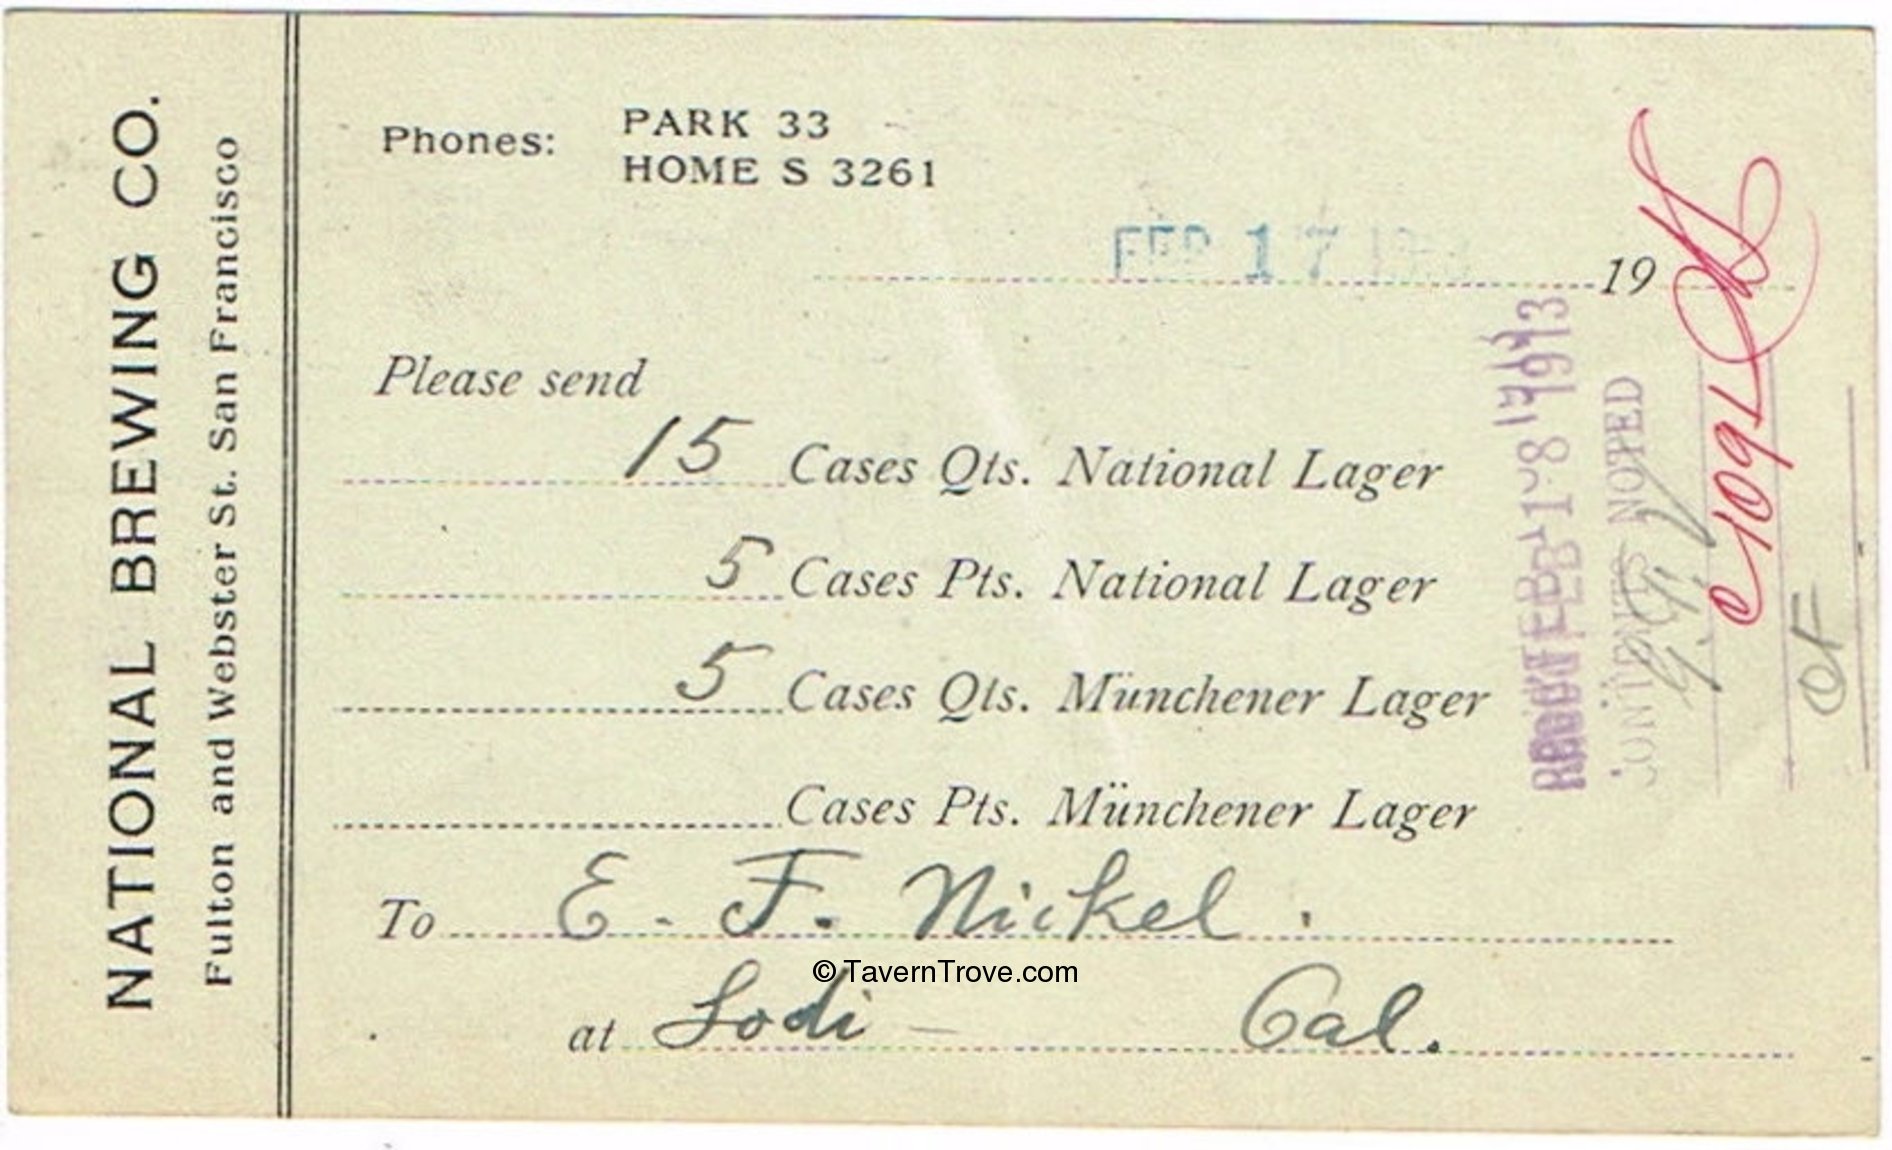 NATIONAL BREWING CO.
Fulton and Webster St. San Francisco
Phones: PARK 33
HOME S 3261
FEB 17
19
Please send
15 Cases Qts. National Lager
5 Cases Pts. National Lager
5 Cases Qts. Münchener Lager
Cases Pts. Münchener Lager
To E. F. Nickel.
© TavernTrove.com
at Lodi - Cal.
FEB 18 1913
CONTENTS NOTED